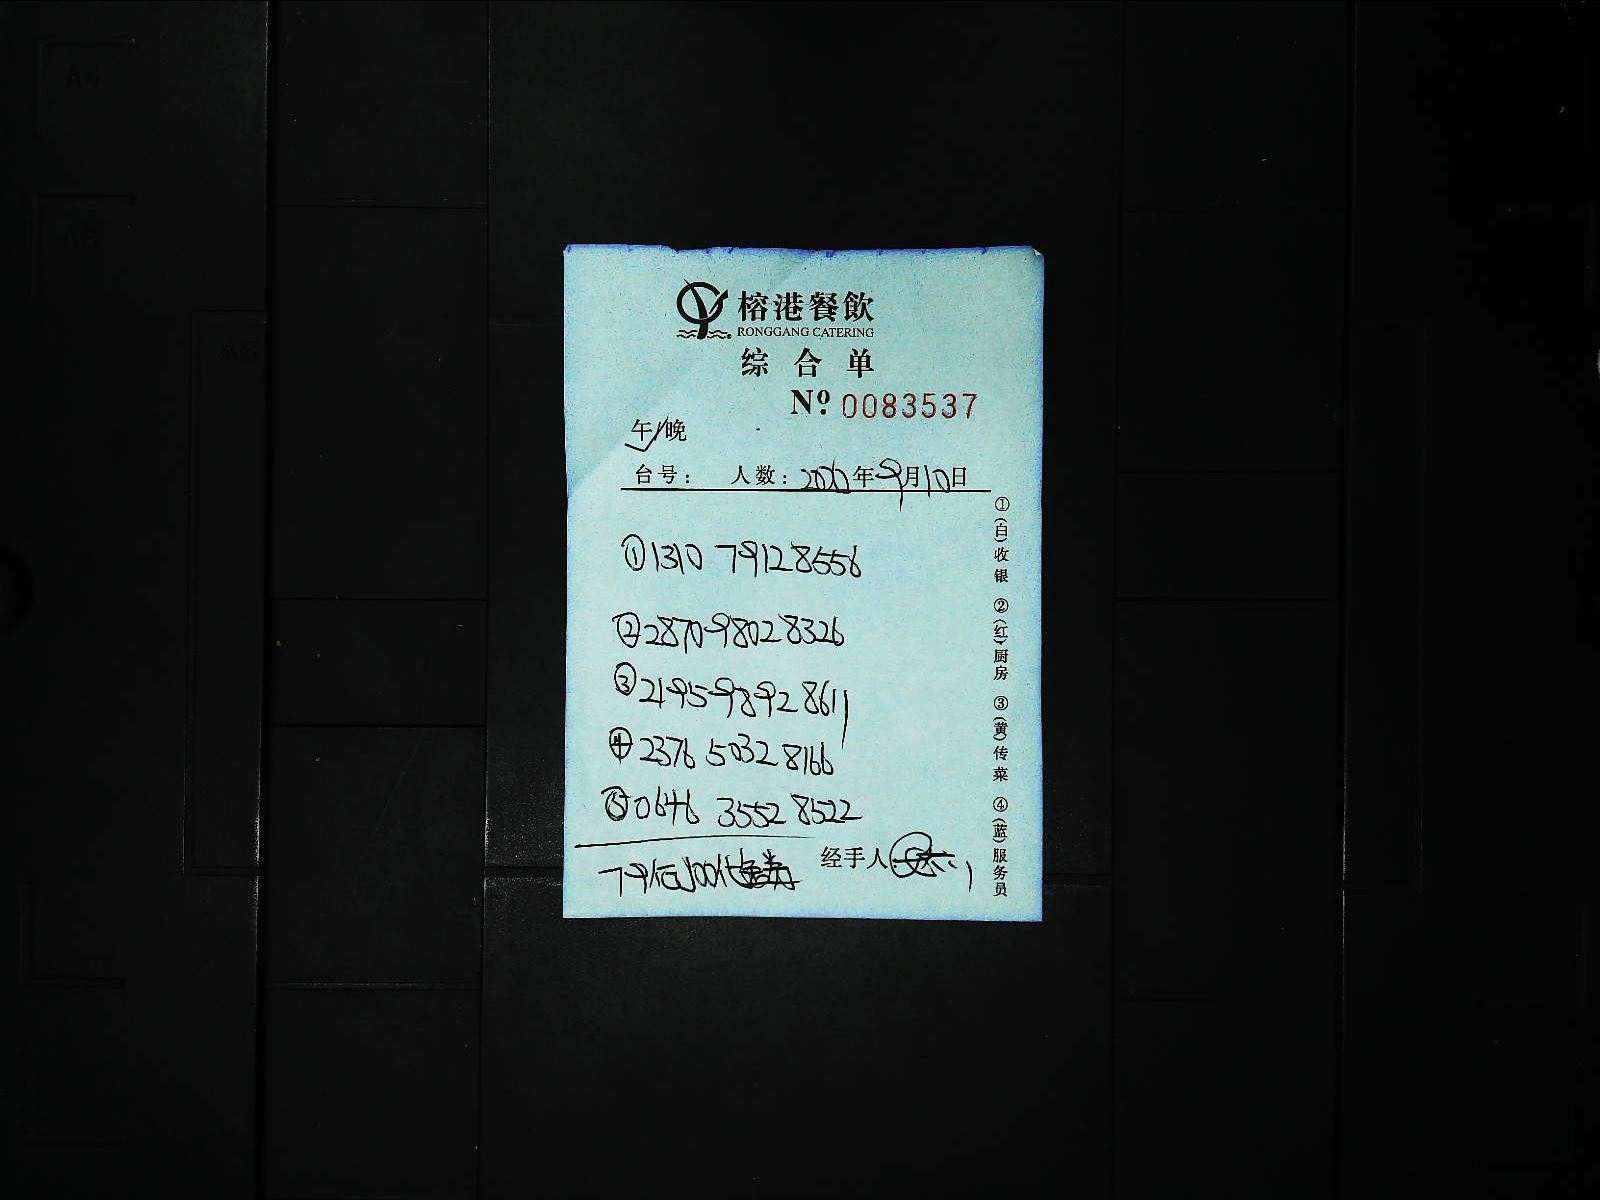 榕港餐飲
RONGGANG CATERING
综合单
Nº 0083537
午/晚
台号: 人数: 2020年9月10日
①1310 79128556
②2870 98028326
③2195 98928611
④2376 50328166
⑤0646 35528522
79伝100代
经手人
①(白)收银 ②(红)厨房 ③(黄)传菜 ④(蓝)服务员